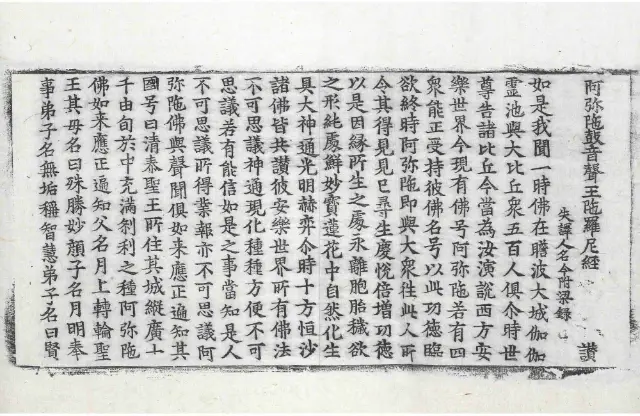 阿弥陁鼓音聲王陁羅尼經　讃
失譯人名今附梁録
如是我聞一時佛在瞻波大城伽伽
霊池與大比丘衆五百人俱尒時世
尊告諸比丘今當為汝演說西方安
樂世界今現有佛号阿弥陁若有四
衆能正受持彼佛名号以此功德臨
欲終時阿弥陁即與大衆徃此人所
令其得見見已尋生慶恱倍增功德
以是因縁所生之處永離胞胎穢欲
之形純處鮮妙寶蓮花中自然化生
具大神通光明赫弈尒時十方恒沙
諸佛皆共讃彼安樂世界所有佛法
不可思議神通現化種種方便不可
思議若有能信如是之事當知是人
不可思議所得業報亦不可思議阿
弥陁佛與聲聞俱如来應正遍知其
國号曰清泰聖王所住其城縱廣十
千由旬於中充滿剎利之種阿弥陁
佛如来應正遍知父名月上轉輪聖
王其母名曰殊勝妙顔子名月明奉
事弟子名無垢稱智慧弟子名曰賢